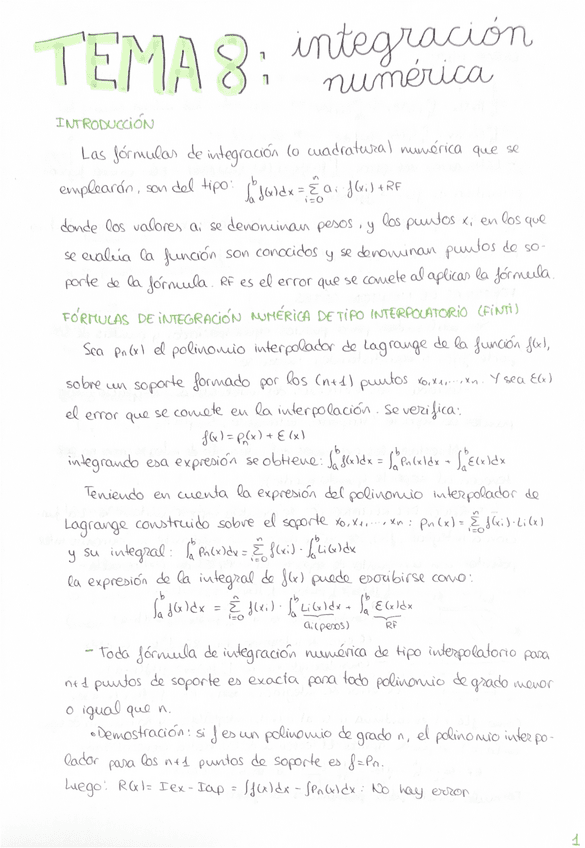 TEMA 8: integración
numérica
INTRODUCCIÓN
Las fórmulas de integración (o cuadratura) numérica que se
emplearán, son del tipo: ∫_a^b f(x)dx = Σ_{i=0}^n a_i f(x_i) + RF
donde los valores a_i se denominan pesos, y los puntos x_i en los que
se evalúa la función son conocidos y se denominan puntos de so-
porte de la fórmula. RF es el error que se comete al aplicar la fórmula.
FÓRMULAS DE INTEGRACIÓN NUMÉRICA DE TIPO INTERPOLATORIO (FINTI)
Sea p_n(x) el polinomio interpolador de Lagrange de la función f(x),
sobre un soporte formado por los (n+1) puntos x_0, x_1, ..., x_n. Y sea ε(x)
el error que se comete en la interpolación. Se verifica:
f(x) = p_n(x) + ε(x)
integrando esa expresión se obtiene: ∫_a^b f(x)dx = ∫_a^b p_n(x)dx + ∫_a^b ε(x)dx
Teniendo en cuenta la expresión del polinomio interpolador de
Lagrange construido sobre el soporte x_0, x_1, ..., x_n: p_n(x) = Σ_{i=0}^n f(x_i)·L_i(x)
y su integral: ∫_a^b p_n(x)dx = Σ_{i=0}^n f(x_i)·∫_a^b L_i(x)dx
la expresión de la integral de f(x) puede escribirse como:
∫_a^b f(x)dx = Σ_{i=0}^n f(x_i)·∫_a^b L_i(x)dx + ∫_a^b ε(x)dx
a_i (pesos) RF
- Toda fórmula de integración numérica de tipo interpolatorio para
n+1 puntos de soporte es exacta para todo polinomio de grado menor
o igual que n.
• Demostración: si f es un polinomio de grado n, el polinomio interpo-
lador para los n+1 puntos de soporte es f=P_n.
Luego: R(x) = Iex - Iap = ∫f(x)dx - ∫p_n(x)dx : No hay error
1